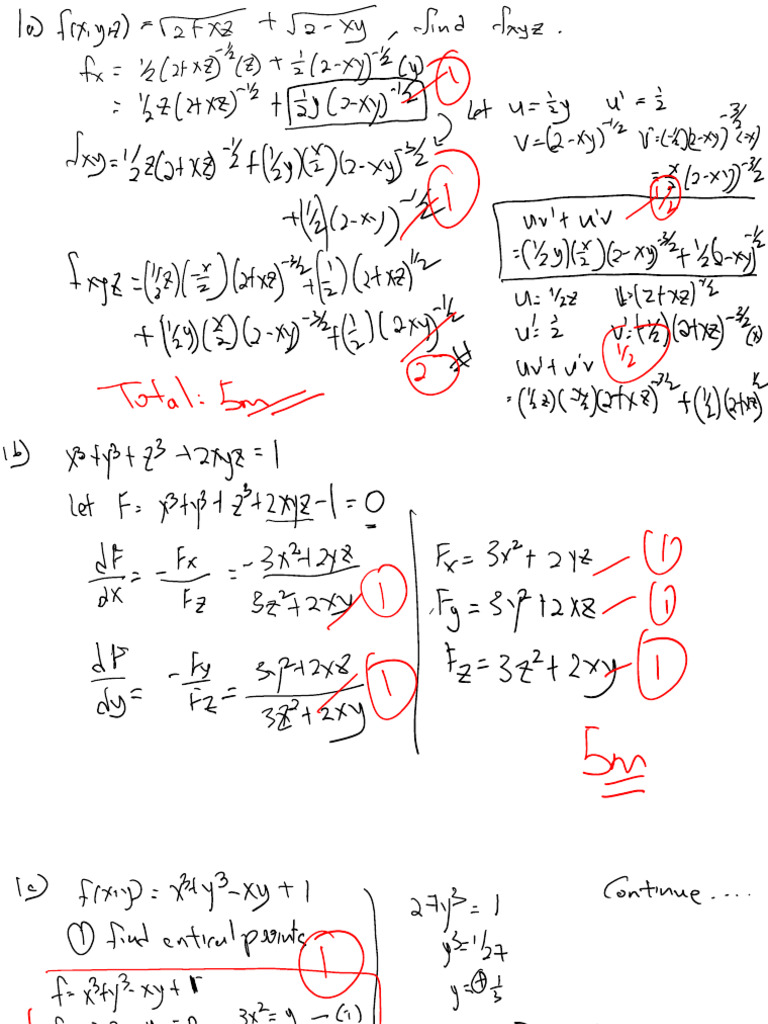 1a) f(x,y,z) = √(2+xz) + √(2-xy), find fxyz.
fx = 1/2 (2+xz)^-1/2 (z) + 1/2 (2-xy)^-1/2 (y) 1
= 1/2 z (2+xz)^-1/2 + 1/2 y (2-xy)^-1/2
let u = 1/2 y u' = 1/2
v = (2-xy)^-1/2 v' = (-1/2)(2-xy)^-3/2 (-x)
= x/2 (2-xy)^-3/2
1/2
uv' + u'v
= (1/2 y)(x/2)(2-xy)^-3/2 + 1/2 (2-xy)^-1/2
fxy = 1/2 z (2+xz)^-1/2 + (1/2 y)(x/2)(2-xy)^-3/2
+ (1/2)(2-xy)^-1/2 1
fxyz = (1/2 z)(-x/2)(2+xz)^-3/2 + (1/2)(2+xz)^1/2
+ (1/2 y)(x/2)(2-xy)^-3/2 + (1/2)(2xy)^-1/2
2 #
u = 1/2 z v = (2+xz)^-1/2
u' = 1/2 v' = (-1/2)(2+xz)^-3/2 (x)
1/2
uv' + u'v
= (1/2 z)(-x/2)(2+xz)^-3/2 + (1/2)(2+xz)^1/2
Total: 5m
1b) x³+y³+z³+2xyz=1
let F = x³+y³+z³+2xyz-1=0
dF/dx = -Fx/Fz = -3x²+2yz/3z²+2xy 1
dF/dy = -Fy/Fz = 3y²+2xz/3z²+2xy 1
Fx = 3x²+2yz 1
Fy = 3y²+2xz 1
Fz = 3z²+2xy 1
5m
1c) f(x,y) = x³+y³-xy+1
① find critical points 1
f = x³+y³-xy+1
3x² = y — (1)
27y³ = 1
y³ = 1/27
y = + 1/3
Continue....